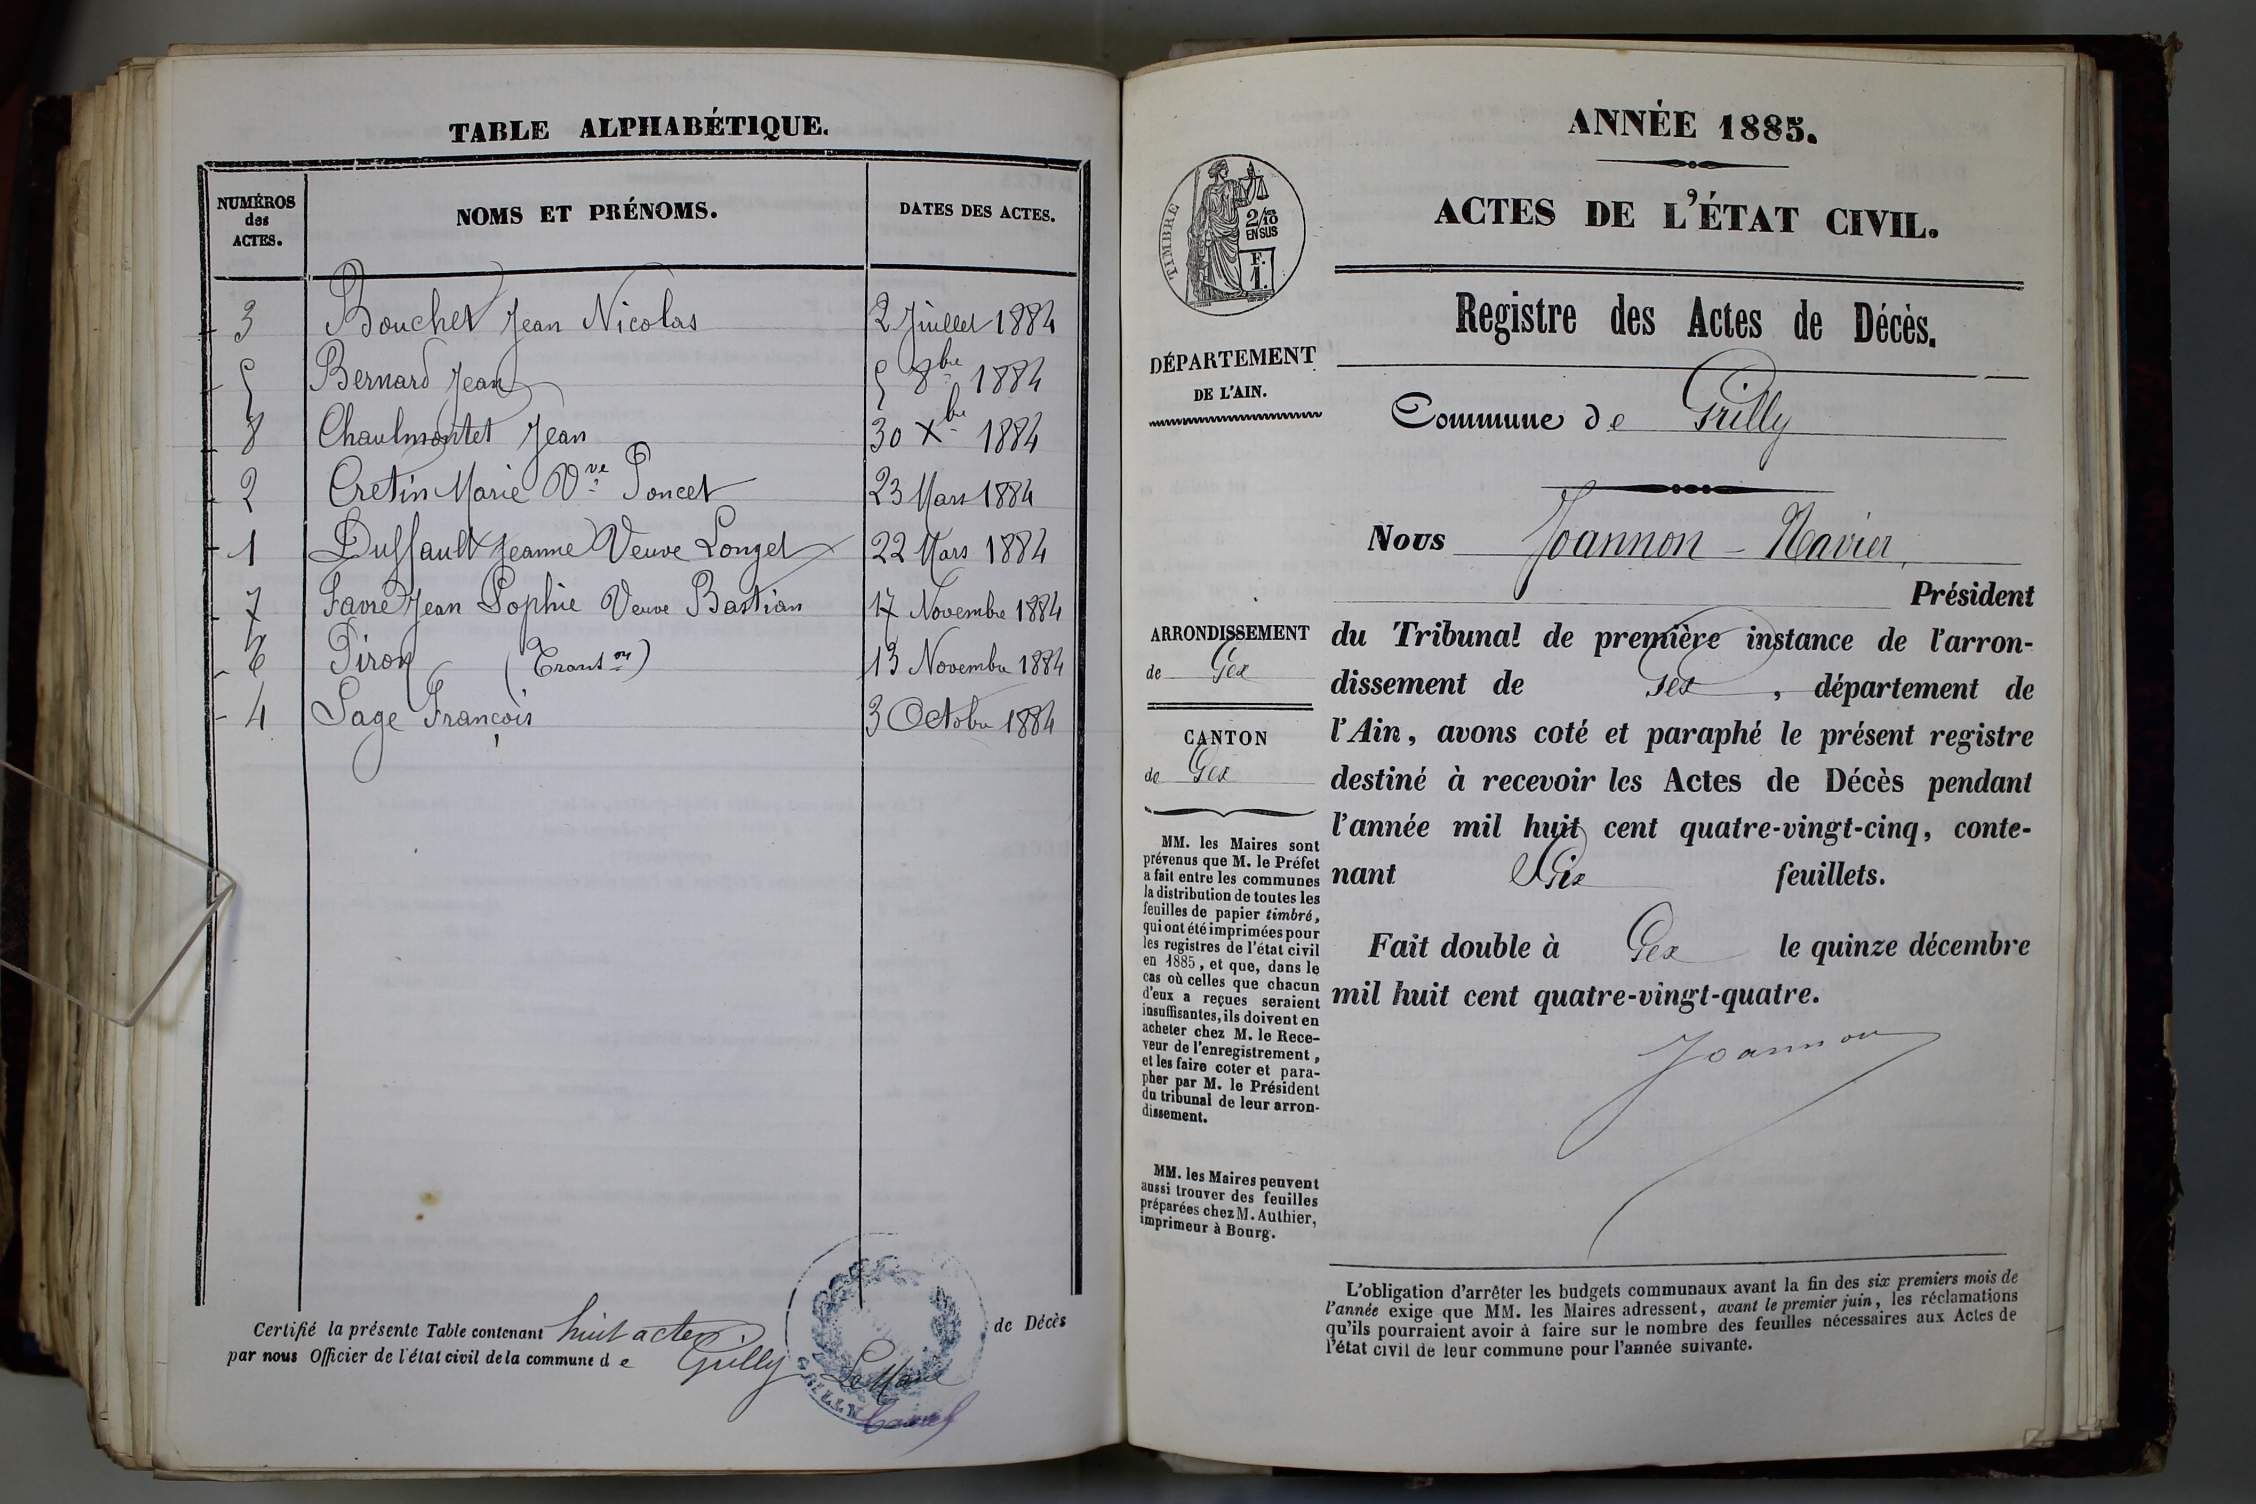 TABLE ALPHABÉTIQUE.
NUMÉROS
des
ACTES.
NOMS ET PRÉNOMS.
DATES DES ACTES.
3 Bouchet Jean Nicolas 2 Juillet 1884
5 Bernard Jean 5 8bre 1884
8 Chaulmontet Jean 30 Xbre 1884
2 Cretin Marie Vve Poncet 23 Mars 1884
1 Duffault Jeanne Veuve Longet 22 Mars 1884
7 Favre Jean Sophie Veuve Bastian 17 Novembre 1884
6 Piron 13 Novembre 1884
4 Sage François 3 Octobre 1884
Certifié la présente Table contenant huit actes de Décès
par nous Officier de l'état civil de la commune de Grilly Le Maire
ANNÉE 1885.
ACTES DE L'ÉTAT CIVIL.
TIMBRE
2/10
EN SUS
F.
1.
Registre des Actes de Décès.
DÉPARTEMENT
DE L'AIN.
Commune de Grilly
Nous Joannon-Navier,
Président
ARRONDISSEMENT
de Gex
CANTON
de Gex
du Tribunal de première instance de l'arron-
dissement de Gex, département de
l'Ain, avons coté et paraphé le présent registre
destiné à recevoir les Actes de Décès pendant
l'année mil huit cent quatre-vingt-cinq, conte-
nant Six feuillets.
Fait double à Gex le quinze décembre
mil huit cent quatre-vingt-quatre.
Joannon
MM. les Maires sont
prévenus que M. le Préfet
a fait entre les communes
la distribution de toutes les
feuilles de papier timbré,
qui ont été imprimées pour
les registres de l'état civil
en 1885, et que, dans le
cas où celles que chacun
d'eux a reçues seraient
insuffisantes, ils doivent en
acheter chez M. le Rece-
veur de l'enregistrement,
et les faire coter et para-
pher par M. le Président
du tribunal de leur arron-
dissement.
MM. les Maires peuvent
aussi trouver des feuilles
préparées chez M. Authier,
imprimeur à Bourg.
L'obligation d'arrêter les budgets communaux avant la fin des six premiers mois de
l'année exige que MM. les Maires adressent, avant le premier juin, les réclamations
qu'ils pourraient avoir à faire sur le nombre des feuilles nécessaires aux Actes de
l'état civil de leur commune pour l'année suivante.